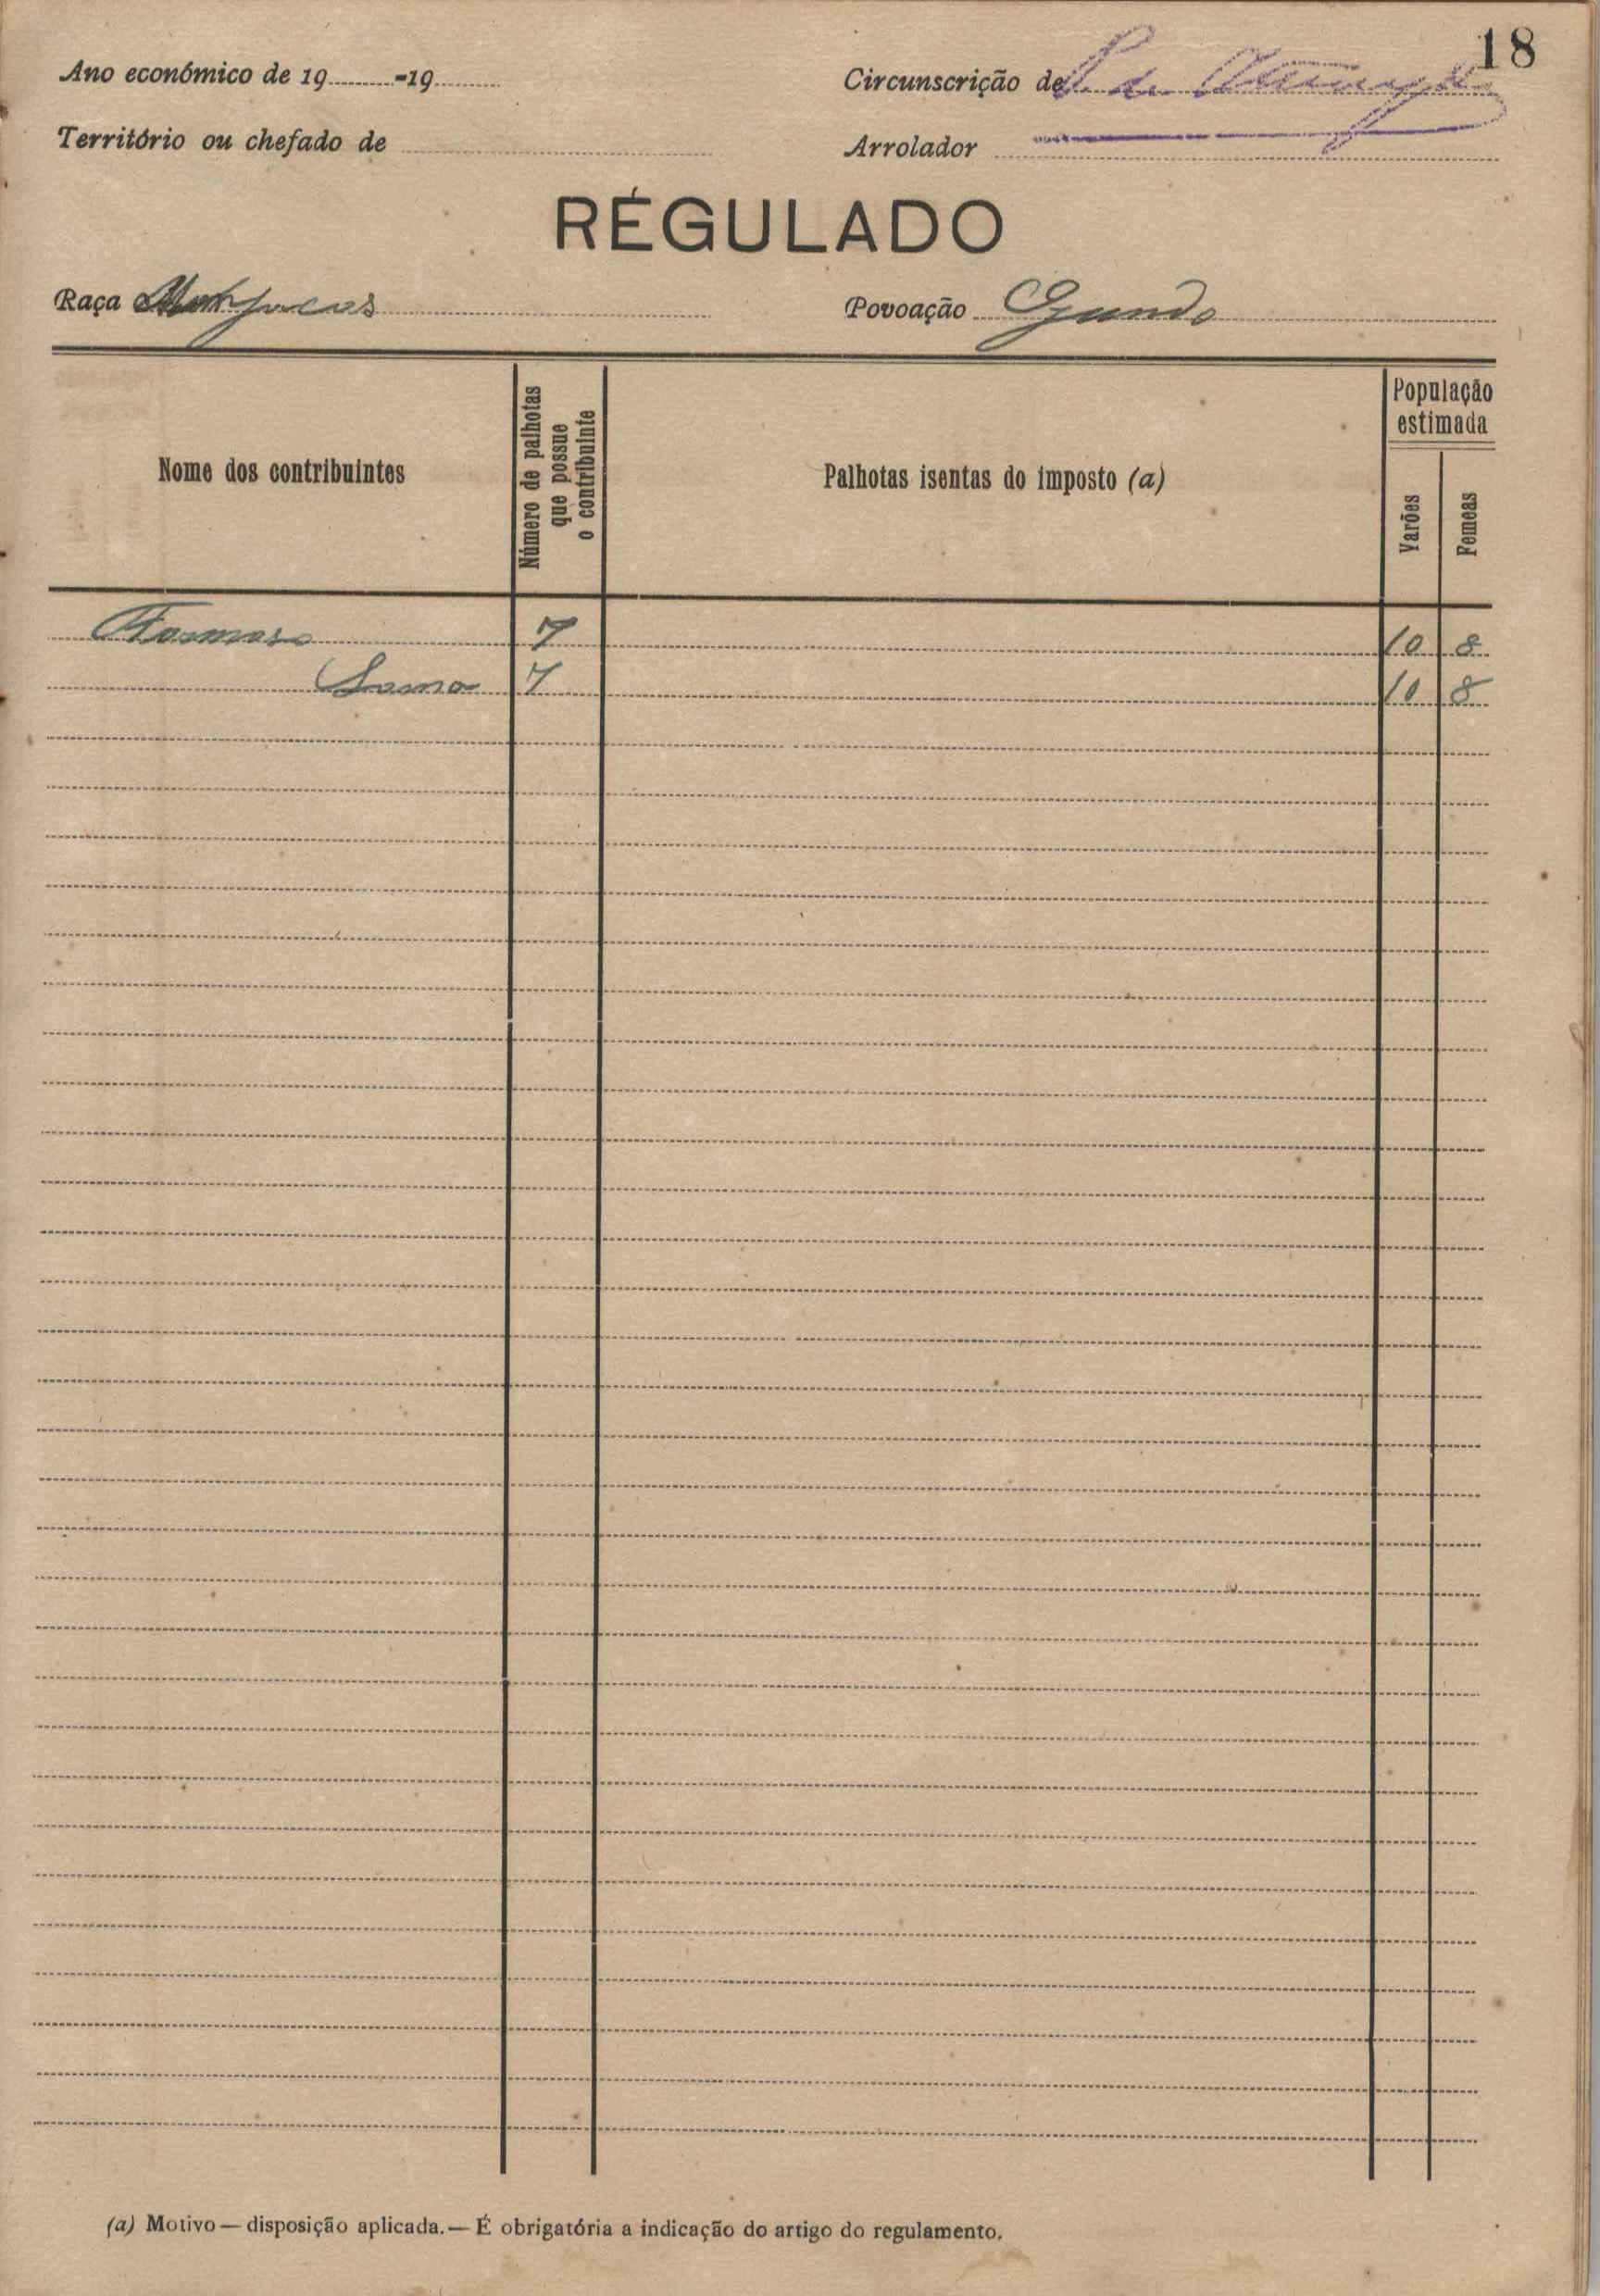 18
Ano económico de 19 -19
Circunscrição de
Território ou chefado de
Arrolador
RÉGULADO
Raça
Povoação
Nome dos contribuintes
Número de palhotas que possue o contribuinte
Palhotas isentas do imposto (a)
População estimada
Varões
Femeas
7 10 8
Soma 7 10 8
(a) Motivo — disposição aplicada. — É obrigatória a indicação do artigo do regulamento.